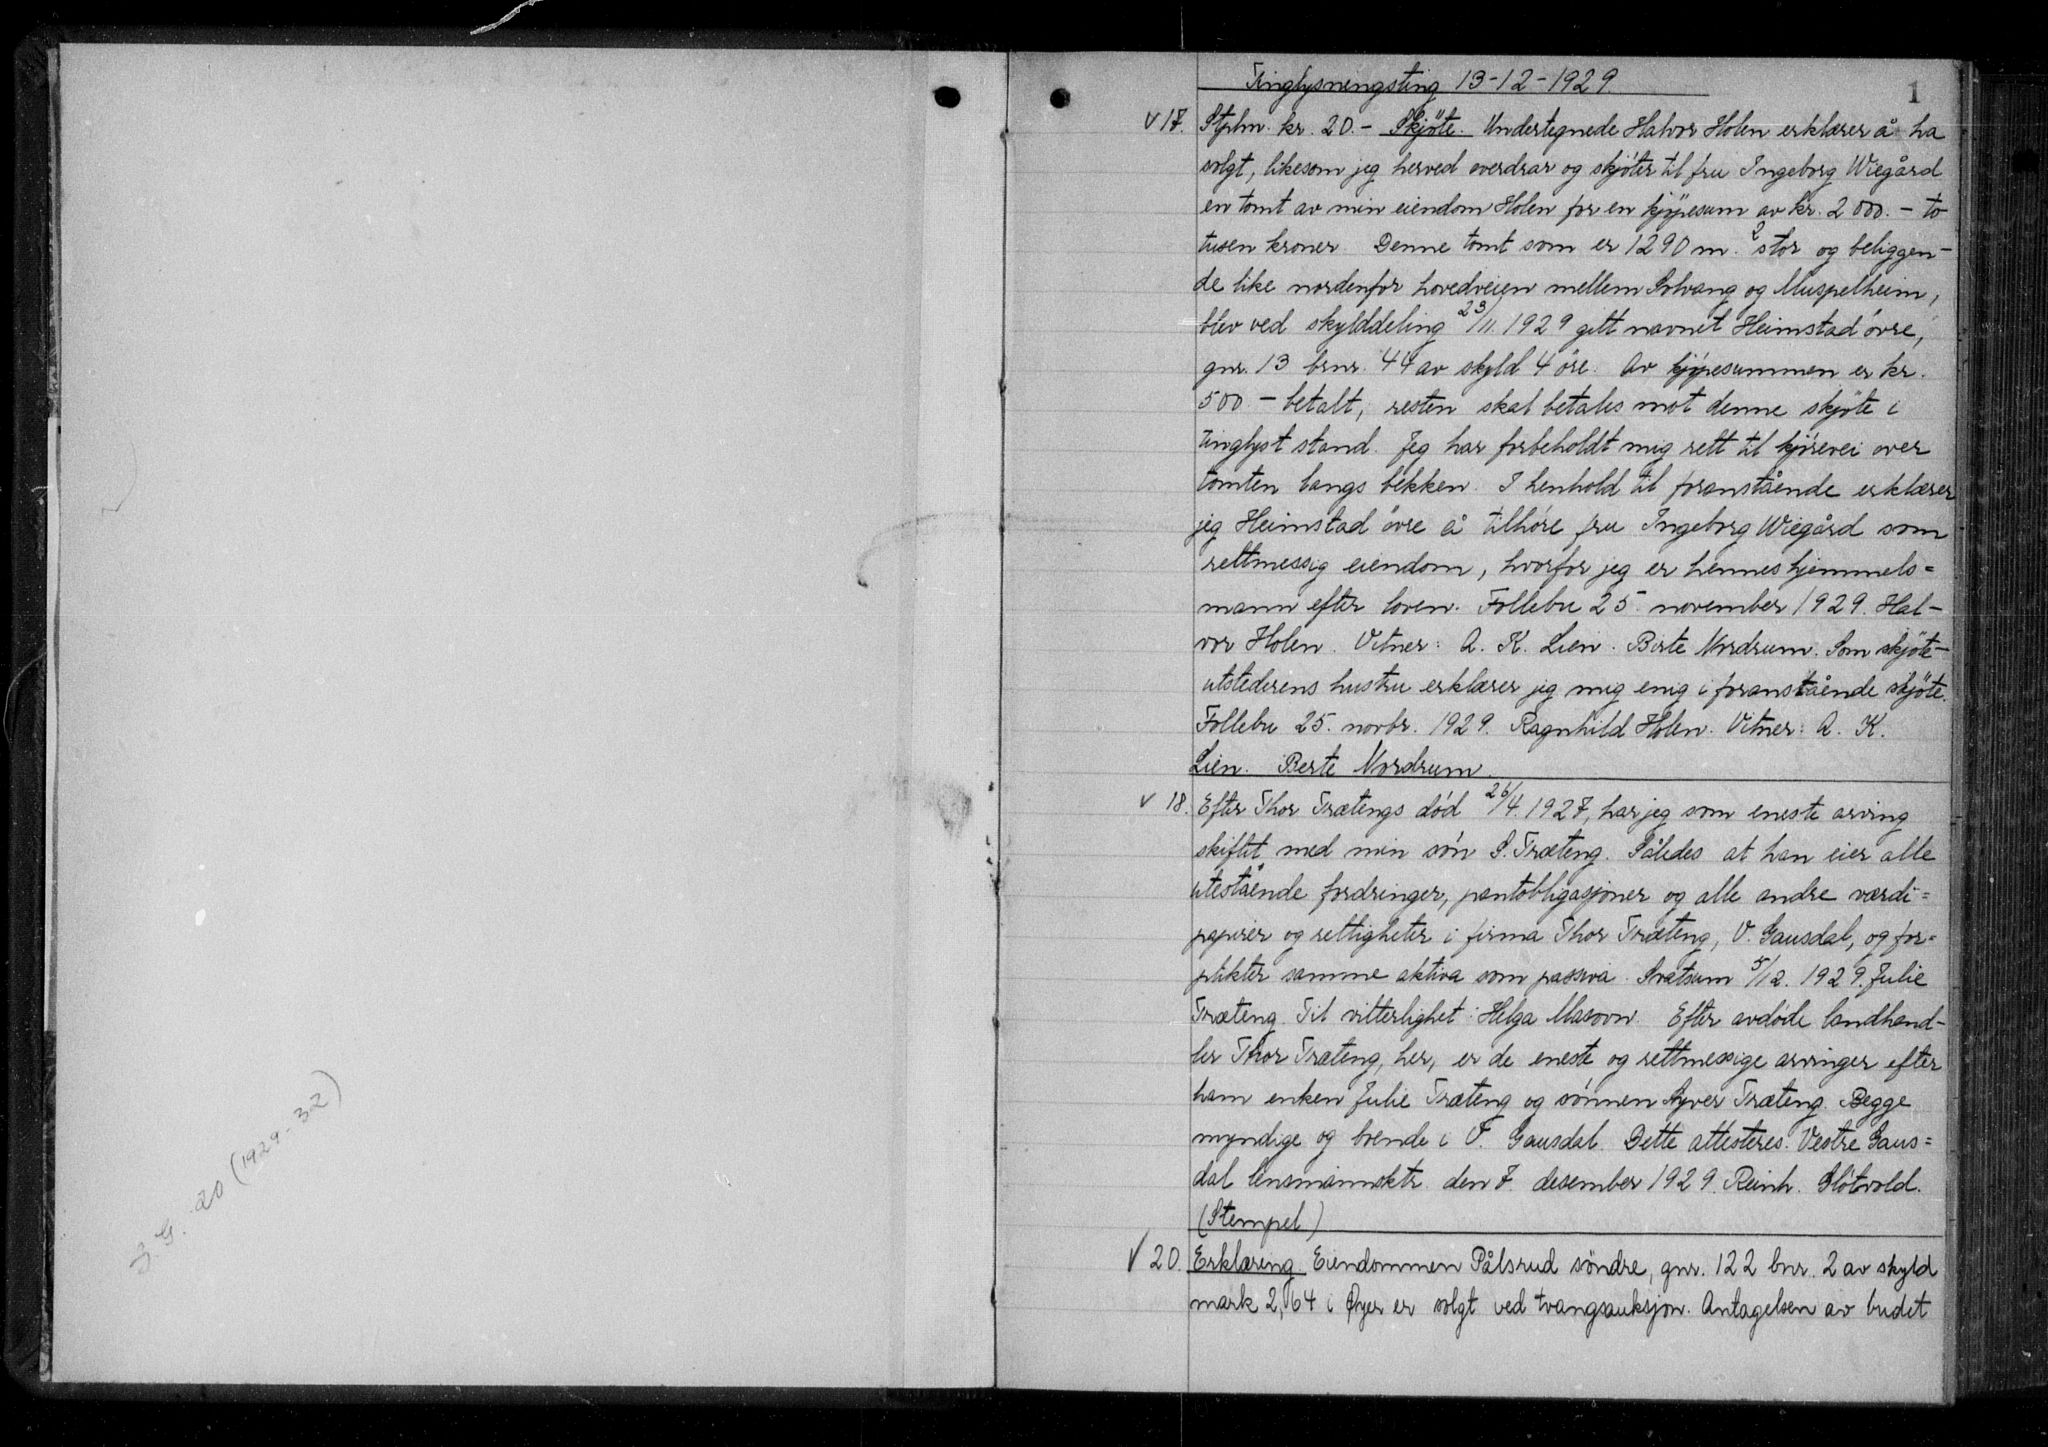 S. G. 20 (1929-32)
1
Tinglysnengsting 13-12-1929.
v 17. Stplm. kr. 20.- Skjöte. Undertegnede Halvor Holen erklærer å ha
solgt, likesom jeg herved overdrar og skjöter til fru Ingeborg Wiegård
en tomt av min eiendom Holen for en kjöpesum av kr. 2000.- to
tusen kroner. Denne tomt som er 1290 m.² stor og beliggen-
de like nordenfor hovedveien mellem Solvang og Muspelheim,
blev ved skylddeling 23/11.1929 gitt navnet Heimstad övre,
gnr. 13 brnr. 44 av skyld 4 öre. Av kjöpesummen er kr.
500.- betalt, resten skal betales mot denne skjöte i
tinglyst stand. Jeg har forbeholdt mig rett til kjörevei over
tomten langs bekken. I henhold til foranstående erklærer
jeg Heimstad övre å tilhöre fru Ingeborg Wiegård som
rettmessig eiendom, hvorfor jeg er hennes hjemmels=
mann efter loven. Follebu 25. november 1929. Hal-
vor Holen. Vitner: A. K. Lien. Berte Nordrum. Som skjöte-
utstederens hustru erklærer jeg mig enig i foranstående skjöte.
Follebu 25. novbr. 1929. Ragnhild Holen. Vitner: A. K.
Lien. Berte Nordrum.
v 18. Efter Thor Trætengs död 26/4.1927, har jeg som eneste arving
skiftet med min sön S. Træteng. Således at han eier alle
utestående fordringer, pantobligasjoner og alle andre værdi=
papirer og rettigheter i firma Thor Træteng, V. Gausdal, og for=
plikter samme aktiva som passiva. Svatsum 5/12. 1929. Julie
Træteng. Til vitterlighet: Helga Masovn. Efter avdöde landhand-
ler Thor Træteng, her, er de eneste og rettmessige arvinger efter
ham enken Julie Træteng og sönnen Syver Træteng. Begge
myndige og boende i V. Gausdal. Dette attesteres. Vestre Gaus=
dal lensmannsktr. den 7. desember 1929. Reinh. Slötvold.
(Stempel)
v 20. Erklæring. Eiendommen Pålsrud söndre, gnr. 122 bnr. 2 av skyld
mark 2,64 i Øyer er solgt ved tvangsauksjon. Antagelsen av budet